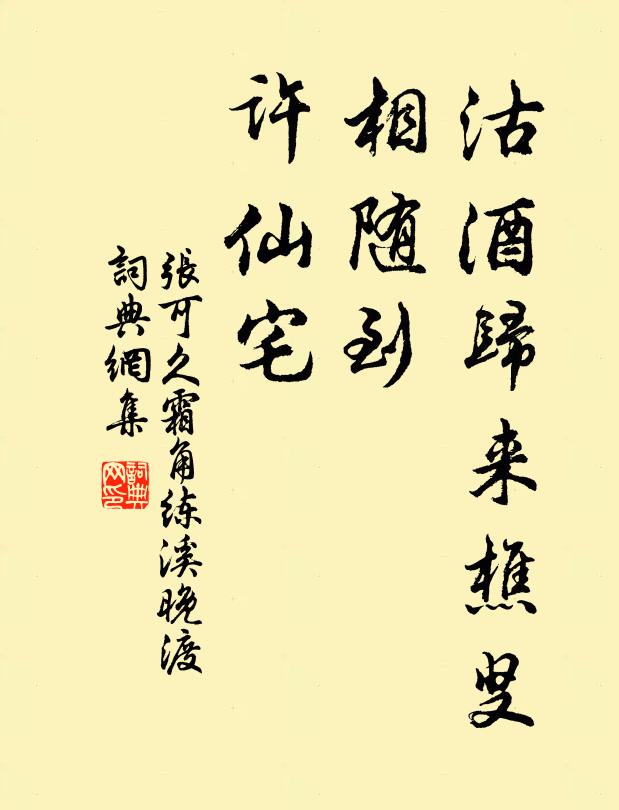 沽酒歸来樵叟
相随到
许仙宅
張可久霜角练溪晚渡
詞典網集
詞典网印